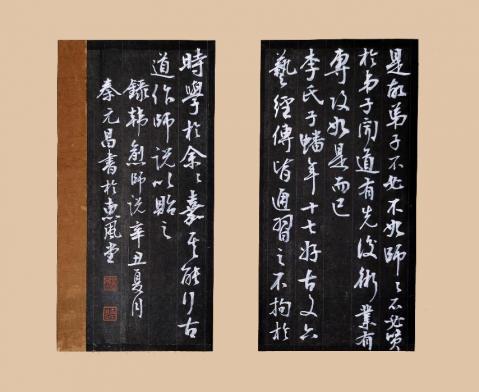 是故弟子不必不如師々不必賢
於弟子聞道有先後術業有
專攻如是而已
李氏子蟠年十七好古文六
藝經傳皆通習之不拘於
時學於余々嘉其能行古
道作師說以貽之
錄韓愈師說辛丑夏月
秦元昌書於惠風堂